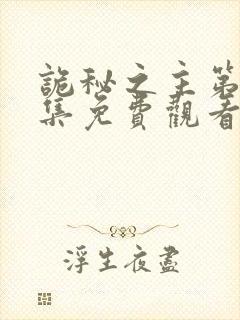 詭秘之主第
集免費觀看
浮生夜盡